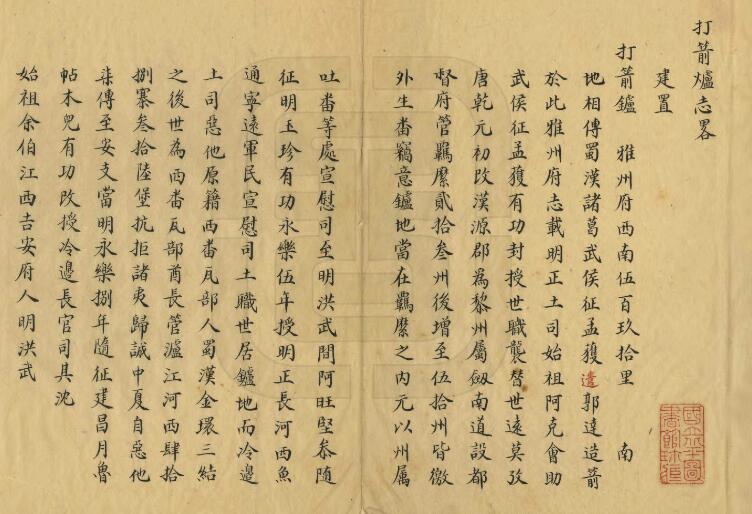 打箭爐志畧
建置
打箭鑪 雅州府西南伍百玖拾里 南
地相傳蜀漢諸葛武侯征孟獲遣郭達造箭
於此雅州府志載明正土司始祖阿克會助
武侯征孟獲有功封授世職襲替世遠莫攷
唐乾元初改漢源郡為黎州屬劔南道設都
督府管羈縻貳拾叁州後增至伍拾州皆徼
外生番竊意鑪地當在羈縻之內元以州属
吐番等處宣慰司至明洪武間阿旺堅叅隨
征明玉珍有功永樂伍年授明正長河西魚
通寧遠軍民宣慰司土職世居鑪地而冷邊
土司惡他原籍西番瓦部人蜀漢金環三結
之後世為西番瓦部酋長管瀘江河西肆拾
捌寨叁拾陸堡抗拒諸夷歸誠中夏自惡他
柒傳至安支當明永樂捌年隨征建昌月魯
帖木兒有功改授冷邊長官司其沈
始祖余伯江西吉安府人明洪武
國立北平圖書館收藏